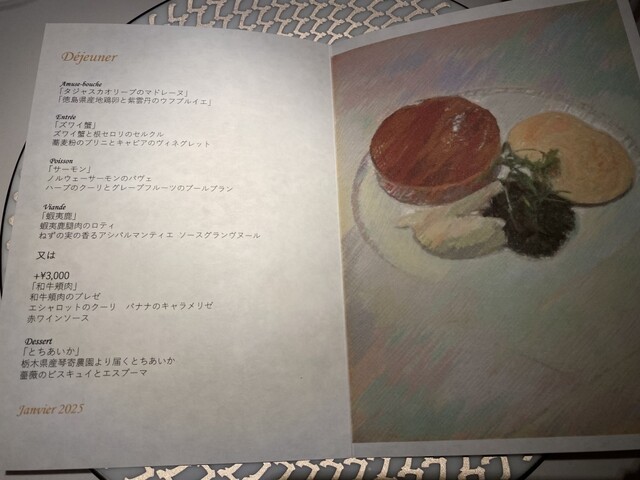 Déjeuner
Amuse-bouche
「タジャスカオリーブのマドレーヌ」
「徳島県産地鶏卵と紫雲丹のウフブルイエ」
Entrée
「ズワイ蟹」
ズワイ蟹と根セロリのセルクル
蕎麦粉のブリニとキャビアのヴィネグレット
Poisson
「サーモン」
ノルウェーサーモンのパヴェ
ハーブのクーリとグレープフルーツのブールブラン
Viande
「蝦夷鹿」
蝦夷鹿腿肉のロティ
ねずの実の香るアシパルマンティエ ソースグランヴヌール
又は
+¥3,000
「和牛頬肉」
和牛頬肉のブレゼ
エシャロットのクーリ バナナのキャラメリゼ
赤ワインソース
Dessert
「とちあいか」
栃木県産琴寄農園より届くとちあいか
薔薇のビスキュイとエスプーマ
Janvier 2025